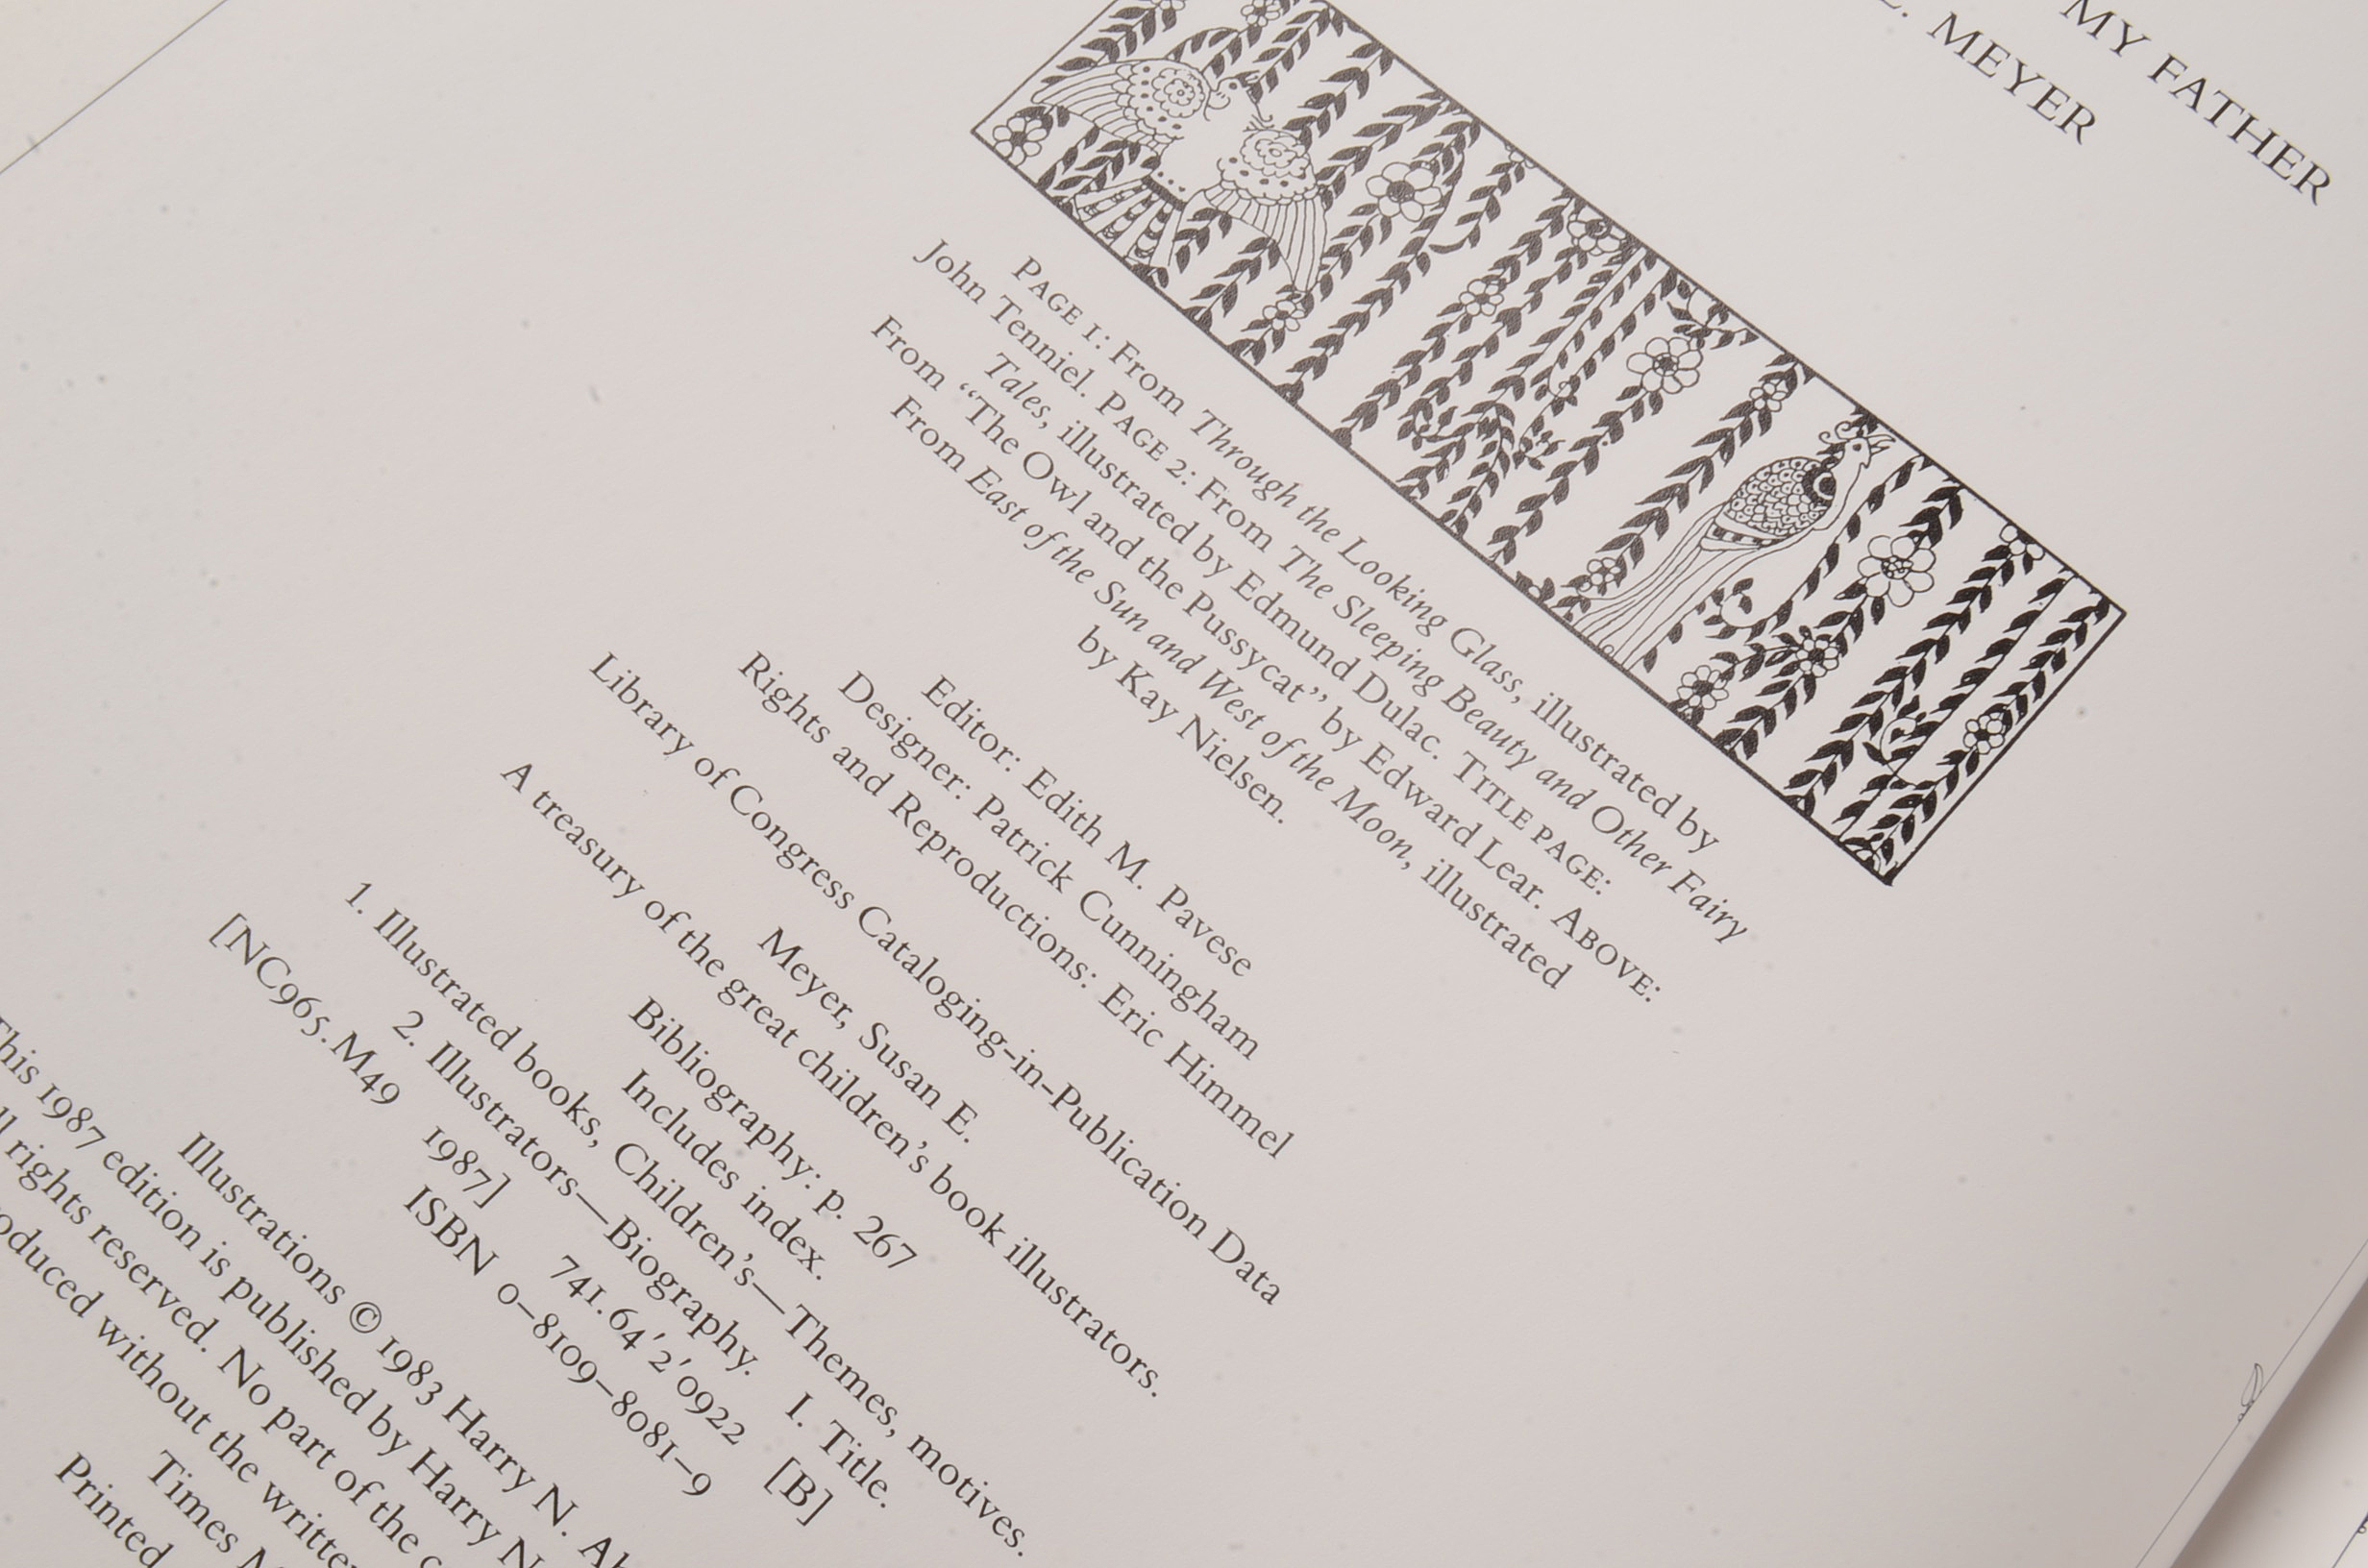 MY FATHER
E. MEYER
PAGE 1: From Through the Looking Glass, illustrated by
John Tenniel. PAGE 2: From The Sleeping Beauty and Other Fairy
Tales, illustrated by Edmund Dulac. TITLE PAGE:
From “The Owl and the Pussycat” by Edward Lear. ABOVE:
From East of the Sun and West of the Moon, illustrated
by Kay Nielsen.
Editor: Edith M. Pavese
Designer: Patrick Cunningham
Rights and Reproductions: Eric Himmel
Library of Congress Cataloging-in-Publication Data
Meyer, Susan E.
A treasury of the great children’s book illustrators.
Bibliography: p. 267
Includes index.
1. Illustrated books, Children’s—Themes, motives.
2. Illustrators—Biography. I. Title.
[NC965.M49 1987] 741.64′2′0922 [B]
ISBN 0-8109-8081-9
Illustrations © 1983 Harry N.
This 1987 edition is published by Harry N.
rights reserved. No part of the
without the written
Times
Printed